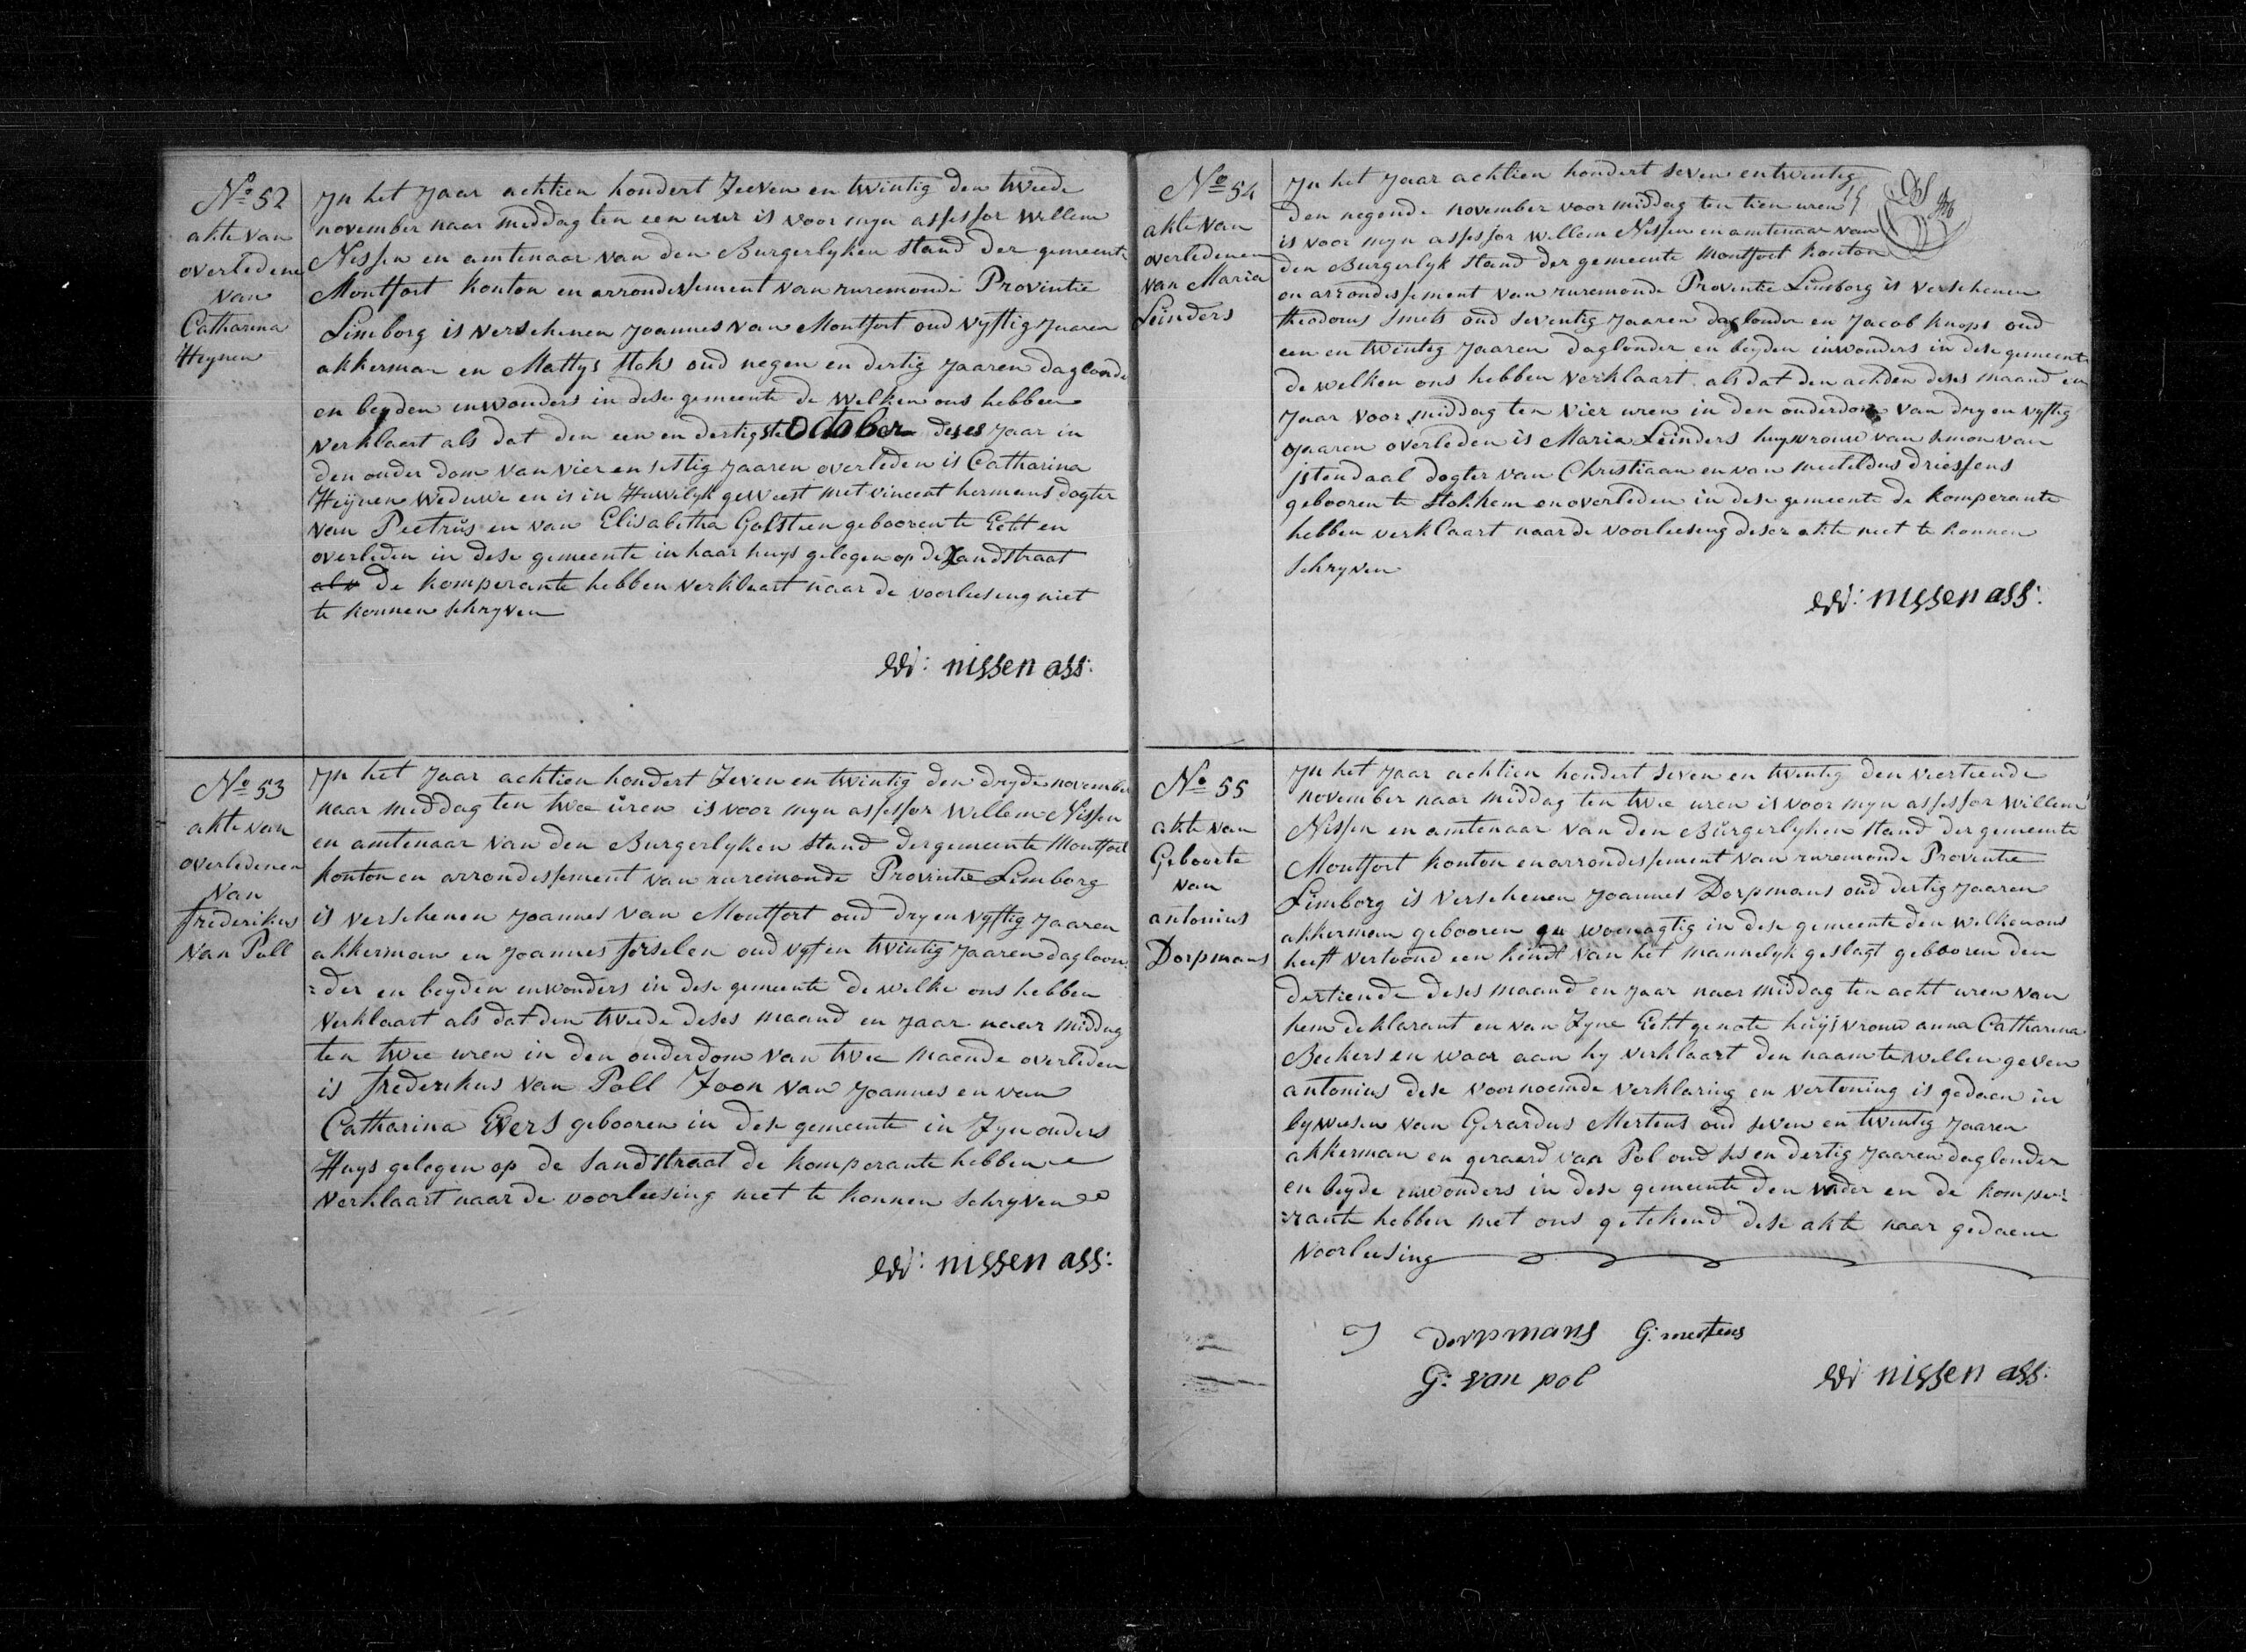 No 52
akte van
overledene
van
Catharina
Heynen
Jn het Jaar achtien hondert Zeeven en twintig den tweede
november naar middag ten een uur is voor myn assessor willem
Nissen en amtenaar van den Burgerlyken stand der gemeente
Montfort konton en arrondissement van ruremonde Provintie
Limborg is verschenen Joannes van Montfort oud vyftig Jaaren
akkerman en Mattys stoks oud negen en dertig Jaaren daglonde
en beyden inwonders in dese gemeente de welken ons hebben
verklaert als dat den een en dertigste October deses Jaar in
den ouder dom van vier en sestig Jaaren overleden is Catharina
Heijnen weduwe en is in Huwelyk geweest met vincent hermens dogter
van Peetrus en van Elisabetha Golsteen gebooren te Echt en
overleden in dese gemeente in haar huys gelegen op de Zandstraat
als de komperante hebben verklaart naar de voorleesing niet
te konnen schryven
W: nissen ass:
No 53
akte van
overledenen
van
frederikus
van Poll
Jn het Jaar achtien hondert Zeven en twintig den dryde november
naar middag ten twee uren is voor myn assessor willem Nissen
en amtenaar van den Burgerlyken stand der gemeente Montfort
konton en arrondessement van ruremonde Provintie Limborg
is verschenen Joannes van Montfort oud dry en vyftig Jaaren
akkerman en Joannes forselen oud vyf en twintig Jaaren dagloon
=der en beyden inwonders in dese gemeente de welke ons hebben
verklaart als dat den tweede deses maand en Jaar naar middag
ten twee uren in den ouderdom van twee maende overleden
is frederikus van Poll Zoon van Joannes en van
Catharina Evers gebooren in dese gemeente in Zyn ouders
Huys gelegen op de sandstraat de komperante hebben
verklaart naar de voorleesing niet te konnen schryven
W: nissen ass:
No 54
akte van
overledenen
van Maria
Leinders
Jn het Jaar achtien hondert seven en twintig
den negende november voor middag ten tien uren
is voor myn assessor willem Nissen en amtenaar van
den Burgerlyk stand der gemeente Montfort konton
en arrondissement van ruremonde Provintie Limborg is verschenen
theodorus smets oud seventig Jaaren daglonder en Jacob knops oud
een en twintig Jaaren daglonder en beyden inwonders in dese gemeente
de welken ons hebben verklaart als dat den achden deses maand en
Jaar voor middag ten vier uren in den onderdom van dry en vyftig
Jaaren overleden is Maria Leinders huysvrouw van simon van
jstendaal dogter van Christiaan en van meeteldus driessens
gebooren te stokkem en overleden in dese gemeente de komperante
hebben verklaart naar de voorleesing deser akte neet te konnen
schryven
W: nissen ass:
No 55
akte van
Geboorte
van
antonius
Dorpmans
Jn het Jaar achtien hondert seven en twintig den viertiende
november naar middag ten twee uren is voor myn assessor willem
Nissen en amtenaar van den Burgerlyken stand der gemeente
Montfort konton en arrondissement van ruremonde Proventie
Limborg is verschenen Joannes Dorpmans oud dertig Jaaren
akkerman gebooren en woenagtig in dese gemeente den welken ons
heeft vertoond een kindt van het mannelyk geslagt gebooren den
dertiende deses maand en Jaar naar middag ten acht uren van
hem deklarant en van Zyne Echtgenote huijsvrouw anna Catharina
Beckers en waar aan hy verklaart den naam te willen geven
antonius dese voornoemde verklaring en vertoning is gedaen in
bywesen van Gerardus Mertens oud seven en twintig Jaaren
akkerman en geraard van Pol oud ses en dertig Jaaren daglonder
en beyde inwonders in dese gemeente den vader en de kompe=
=rante hebben met ons getekend dese akte naar gedaene
voorleesing
J Dorpmans G: mertens
G: van pol W nissen ass: